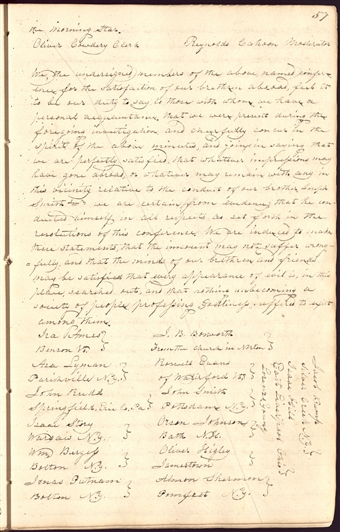 57
the Morning Star.
Oliver Cowdery Clerk Reynolds Cahoon Moderator
We, the undersigned, members of the above named confer-
ence for the satisfaction of our brethren abroad, feel it
to be our duty to say to those with whom we have a
personal acquaintance, that we were present during the
foregoing investigation and cheerfully concur in the
spirit of the above minutes, and join in saying that
we are perfectly satisfied, that whatever impressions may
have gone abroad, or whatever may remain with any in
this vicinity relative to the conduct of our brother Joseph
Smith Jun. we are certain from evidence that he con-
ducted himself, in all respects as set forth in the
resolutions of this conference. We are induced to make
these statements, that the innocent may not suffer wrong-
fully, and that the minds of our brethren and friends
may be satisfied that every appearance of evil is, in this
place, searched out, and that nothing unbecoming a
society of people professing Godliness, suffers to exist
among them.
Ira Ames J. B. Bosworth
Benson Vt. From the church in Norton
Asa Lyman Roswell Evans
Parishville N.Y. of Waterford Vt.
John Rudd John Smith
Springfield, Erie Co. Pa. Potsdam N.Y.
Isaac Story Orson Johnson
Warsaw N.Y. Bath N.H.
Wm Burgess Oliver Higley
Bolton N.Y. Jamestown
Jonas Putnam Almon Sherman
Bolton N.Y. Pomfret N.Y.
Silver Creek N.Y.
Isaac Hill
East Liverpool Ohio